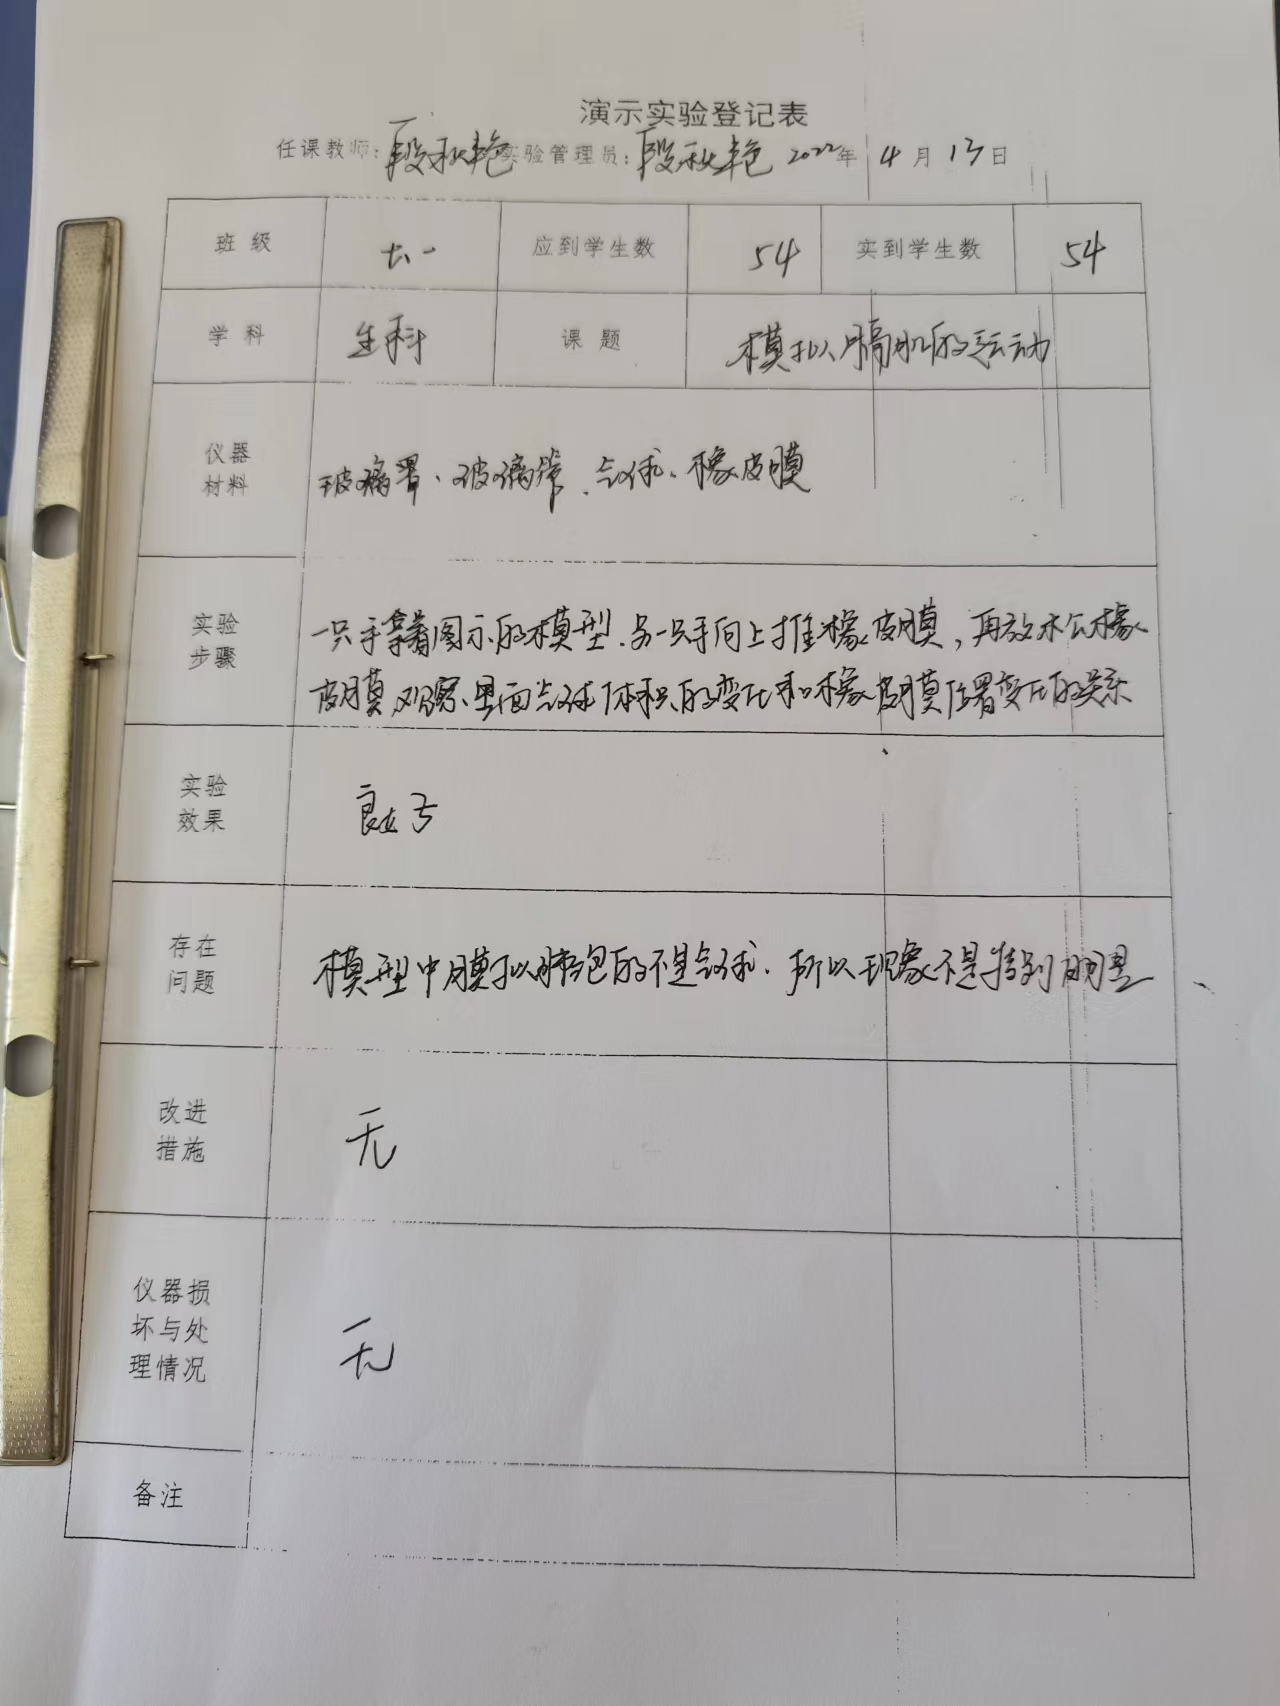 演示实验登记表
任课教师：段秋艳 实验管理员：段秋艳 2022年 4月 13日
班 级 七、一 应到学生数 54 实到学生数 54
学 科 生科 课 题 模拟膈肌的运动
仪器
材料
玻璃罩、玻璃管、气球、橡皮膜
实验
步骤
一只手拿着图示的模型.另一只手向上推橡皮膜，再放松橡
皮膜,观察里面气球体积的变化和橡皮膜位置变化的关系
实验
效果
良好
存在
问题
模型中模拟肺泡的不是气球.所以现象不是特别明显
改进
措施
无
仪器损
坏与处
理情况
无
备注